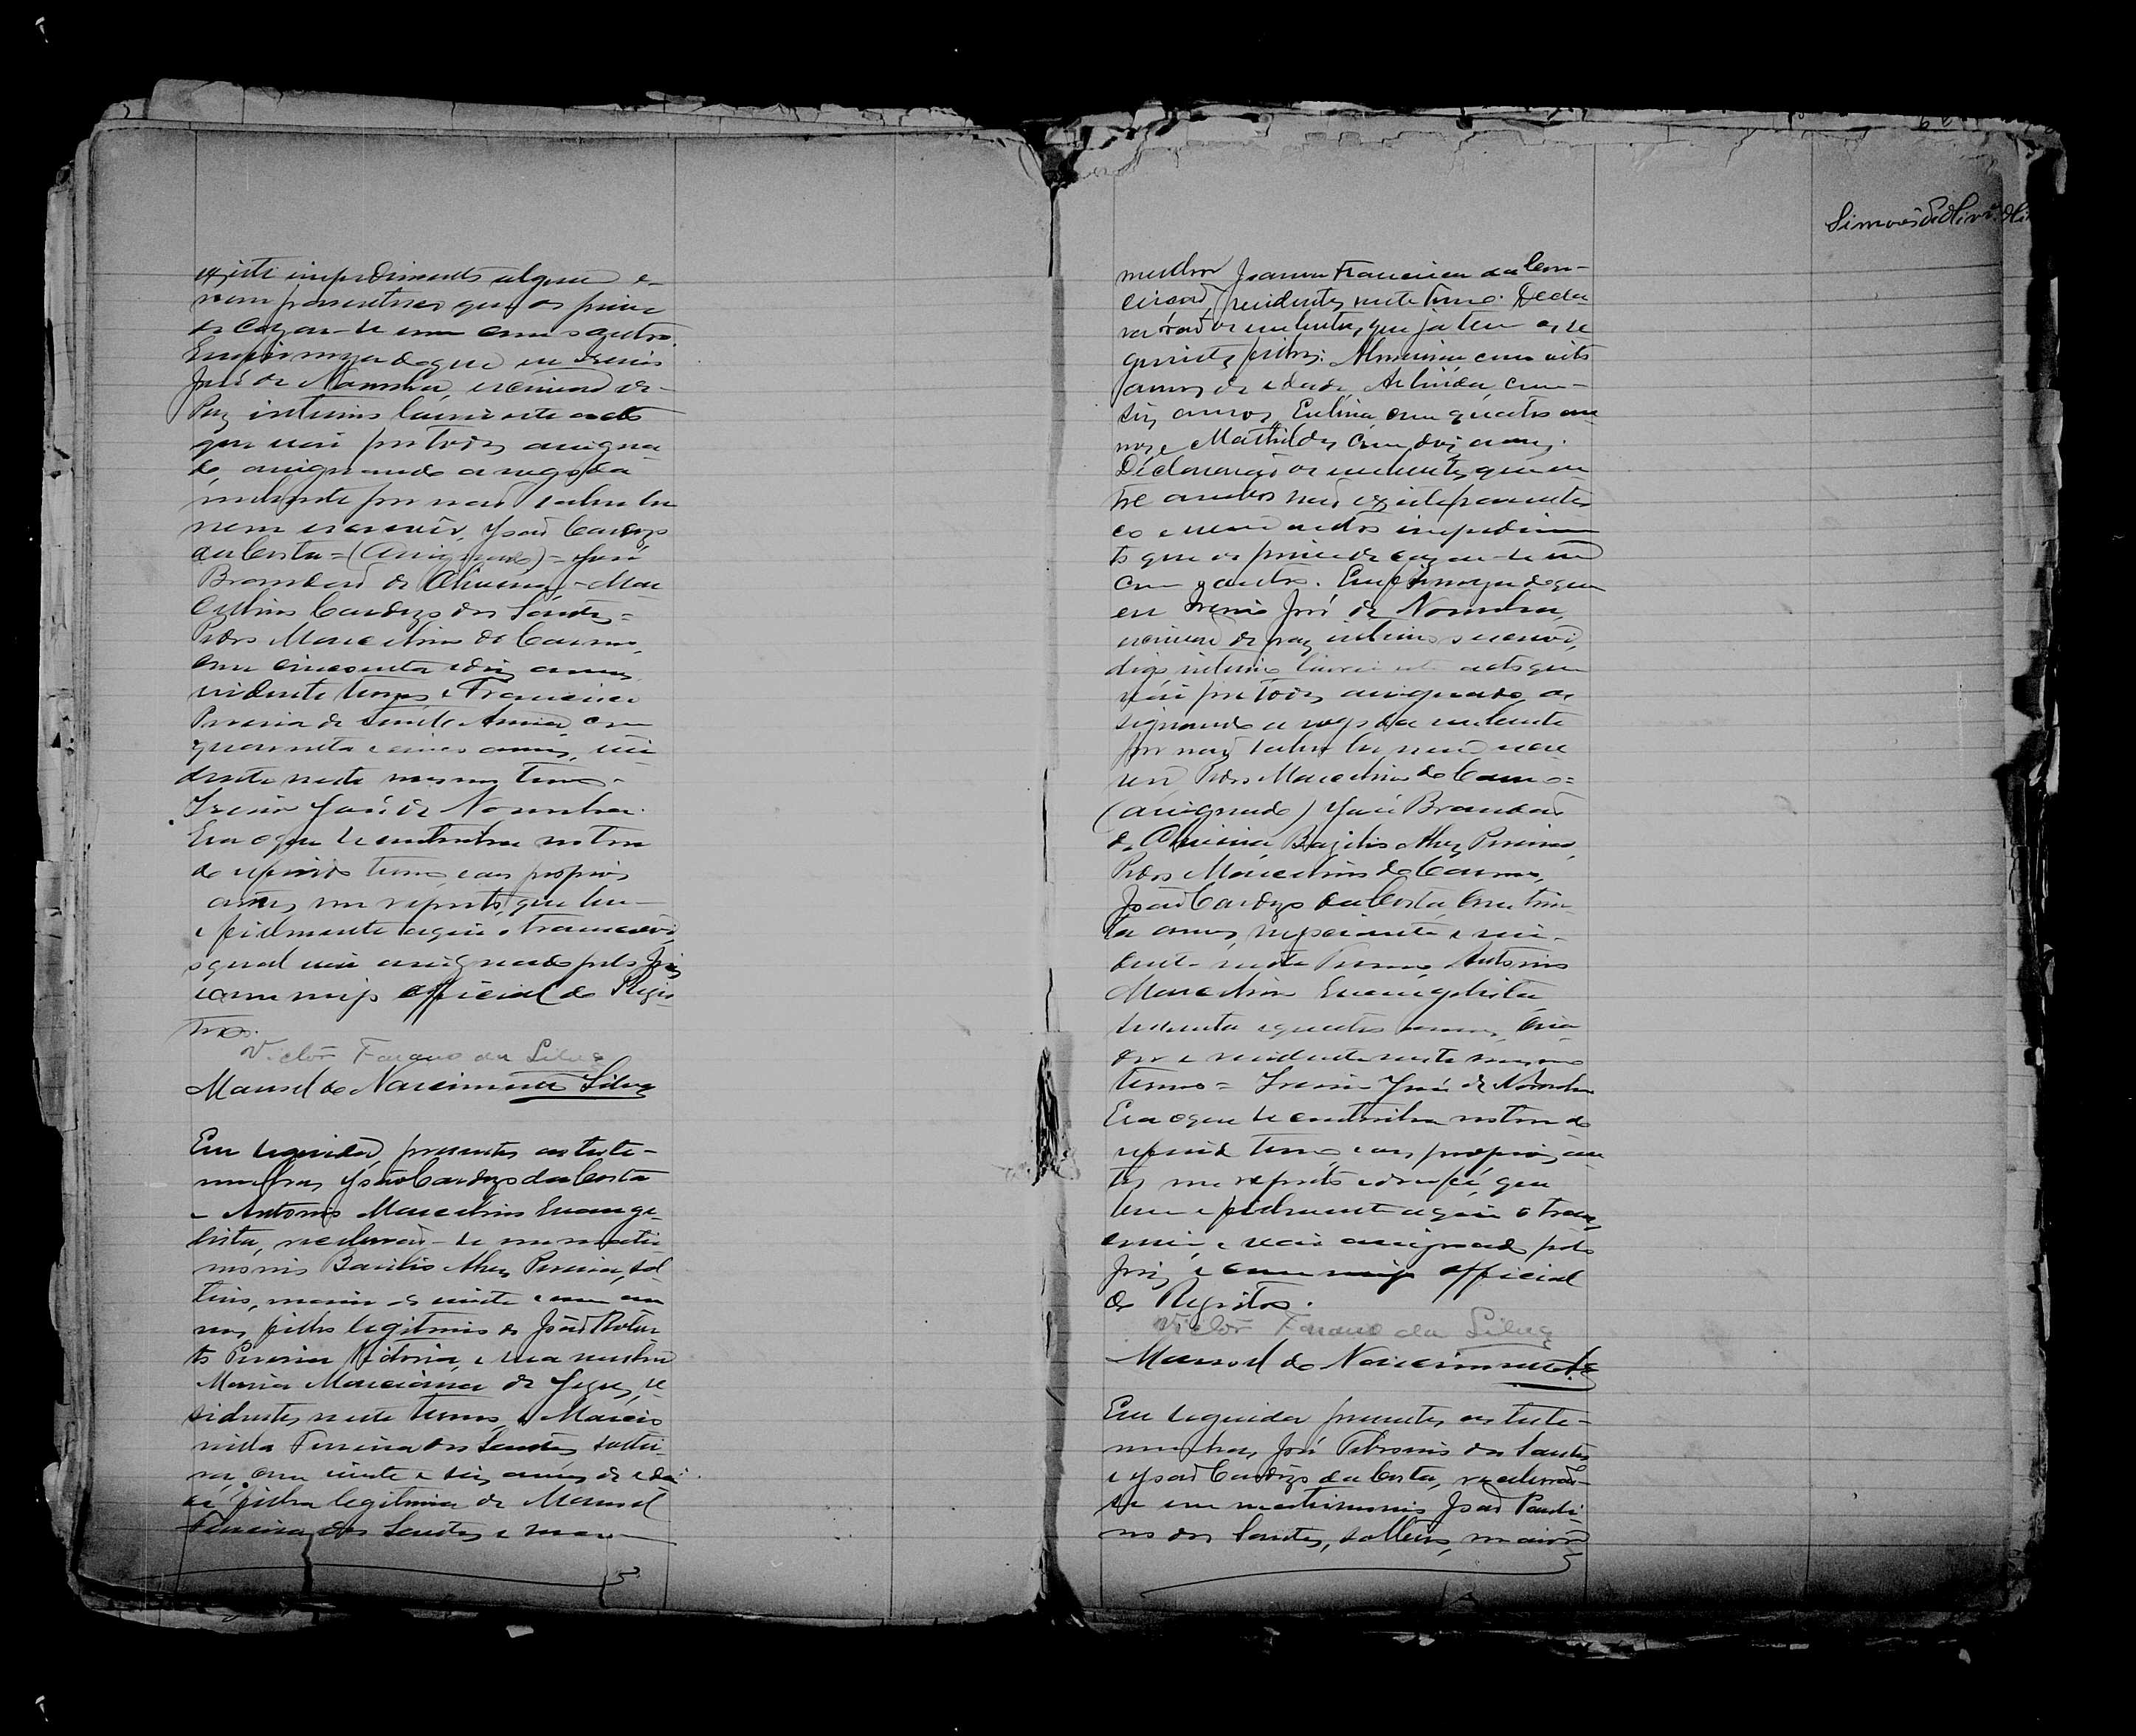 existe impedimento algum e
nem parentesco que os prive
de cazar-se um com o outro.
E em firmeza do que eu Irenio
José de Noronha, escrivão de
Paz interino lavrei este acto
que vai por todos assigna
do, assignando a rogo da
nubente por não saber ler
nem escrever, João Cardozo
da Costa = (Assignado) = José
Brandão de Oliveira = Mar
Cardozo dos Santos =
Pedro Marcelino do Carmo,
com cincoenta e dois annos
residente termo e Francisco
Pereira de Anna, com
quarenta e cinco annos, resi
dente neste mesmo termo.
Irenio José de Noronha.
Era o que se continha no ter
do referido termo e aos proprios
autos me reporto, que bem
e fielmente aqui o transcrevi,
o qual vai assignado pelo Juiz
e commigo official do Regis
tro.
Victor da Silva
Manoel do Nascimento Silva
Em seguida, presentes as teste-
munhas João Cardozo da Costa
e Antonio Marcelino Evange-
lista, receberão-se em matri-
monio Basilio Alves Pereira, sol
teiro, maior de vinte e um an
nos, filho legitimo de João
Pereira e sua mulher
Maria Marciana de Jesus, re
sidentes neste termo, e Marcio
nilla Ferreira dos Santos, soltei
ra, com vinte e seis annos de eda
de filha legitima de Manoel
Ferreira dos Santos e sua
Simões de Oliveira
mulher Joanna Francisca da Con-
ceição, residentes neste termo. Decla
rarão os nubentes, que ja tem os se
guintes filhos: Almerina com oito
annos de edade, Arlinda, com
seis annos, com quatro an
nos, e Mathildes com dois annos.
Declararão os nubentes, que en
tre ambos não existe parentes
co e nem outro impedimen
to que os prive de cazar-se um
com o outro. Em firmeza do que
eu Irenio José de Noronha,
escrivão de paz interino escrevi,
digo, interino lavrei este acto que
vai por todos assignado as
signando a rogo da nubente
por não saber ler nem escre
ver, Pedro Marcelino do Carmo =
(assignado) José Brandão
de Oliveira, Bazilio Alves Pereira,
Pedro Marcelino do Carmo,
João Cardozo da Costa, com trin
ta annos, negociante e resi-
dente neste Termo, Antonio
Marcelino Evangelista
e quatro annos, cria
dor e residente neste mesmo
termo = Irenio José de Noronha
Era o que se continha no ter do
referido termo, e aos proprios au
tos me reporto e dou fé, que
bem e fielmente aqui o trans
crevi, e vai assignado pelo
Juiz e commigo official
do Registro.
Victor da Silva
Manoel do Nascimento
Em seguida presentes as teste-
munhas, José dos Santos
e João Cardozo da Costa, receberão-
se em matrimonio João Pauli
no dos Santos, solteiro, maior